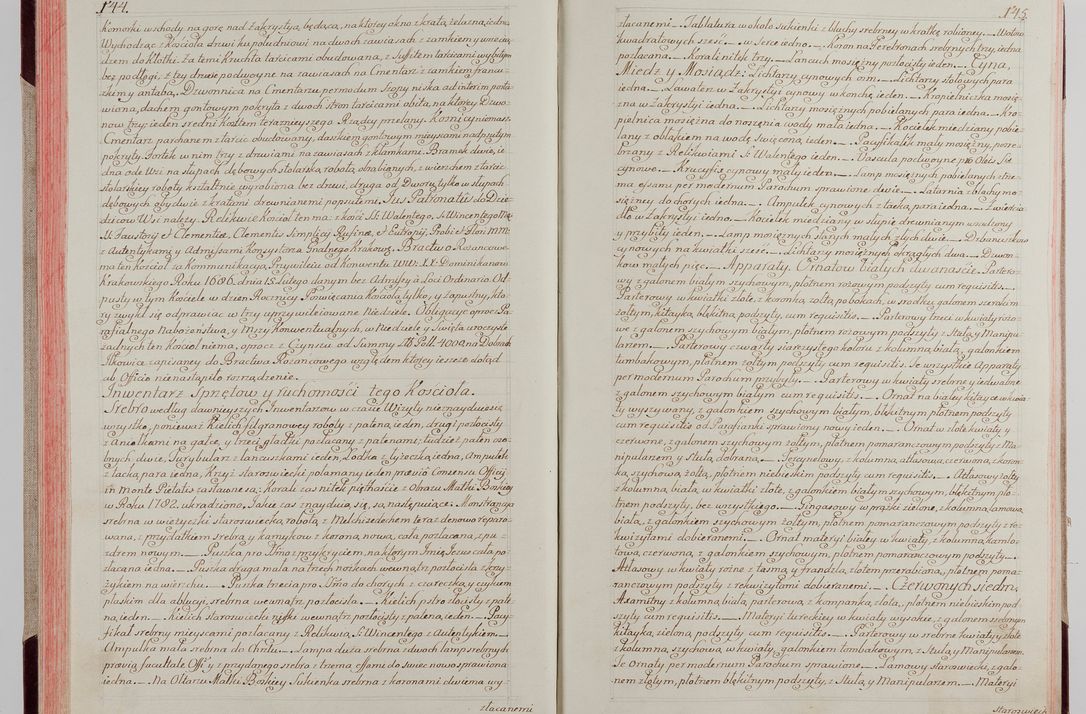 144.
Komorki wschody na gorę nad Zakrystyą będącą, na ktorey okno z kratą żelazną iedno
Wychodząc z Kościoła drzwi ku południowi na dwoch zawiasach z zamkiem y wrzecią-
dzem do kłotki. Za temi Kruchta tarcicami obudowana, z Sufitem tarcicami wybitym
bez podłogi, z tey drzwie podwoyne na zawiasach na Cmentarz z zamkiem francu-
zkim y antabą. Dzwonnica na Cmentarzu per modum Szopy niska ad interim posta-
wiana, dachem gontowym pokryta z dwoch stron tarcicami obita, na ktorey Dzwo-
now trzy, ieden sredni Kosztem teraznieyszego Rządcy przelany.
Cmentarz parchanem z tarcic obwiedziony, daszkiem gontowym mieyscami nadpsutym
pokryty. Fortek w nim trzy z drzwiami na zawiasach z klamkami. Bramek dwie, ie-
dna ode Wsi na słupach dębowych stolarską robotą obrabianych, z wierzchem z tarcic
stolarskiey roboty kształtnie wyrobiona bez drzwi, druga od Dworu tylko w słupach
dębowych obydwie z kratami drewnianemi popsutemi. Jus Patronatus do Dzie-
dzicow Wsi należy. Relikwie Kościoł ten ma: z kości S. Walentego, S. Wincentego M.
SS. Faustorii et Clementiae, Clementis Simplicij Rufinae, et Eutropij, Probi et Flori MM.
z Autentykami y Admissami Konsystorza Gnalnego Krakowg. Bractwo Rozancowe
ma ten kościoł za Kommunikacyą Przywileiu od Konwentu WW. XX. Dominikanow
Krakowskiego Roku 1686. dnia 15. Lutego danym bez Admissyi Loci Ordinario. Od-
pusty w tym Kościele w dzień Rocznicy Poświęcania Kościoła tylko, y Zapustny, kto-
ry zwykł się odprawiac w trzy uprzywileiowane Niedziele. Obligacye oprocz Pa-
rafialnego Nabożeństwa, y Mszy Konwentualnych, w Niedziele y Swięta uroczyste
żadnych ten Kościoł niema, oprocz z Czynszu od Summy Zł. Poll. 4000. na Dobrach
Ilkowice zapisaney do Bractwa Rozancowego względem ktorey ieszcze dotąd
ab Officio nienastąpiło rozrządzenie.
Inwentarz Sprzętow y ruchomości tego Kościoła.
Srebro według dawnieyszych Inwentarzow w czasie Wizyty nieznayduie się
wszystko, ponieważ Kielich filgranowey roboty z pateną ieden, drugi pozłocisty
z Aniołkami na gałce, y trzeci gładki pozłacany z patenami; tudzież paten oso-
bnych dwie, Turybularz z łancuszkami ieden, Łodka z łyżeczką iedna, Ampułek
z tacką para iedna, Krzyż staroswiecki połamany ieden praevio Consensu Officij
in Monte Pietatis zastawne są: Korali zas nitek piętnaście z Obrazu Matki Boskiey
w Roku 1782. ukradziono. Jakie zas znayduią się, są następuiące: Monstrancya
srebrna w wieżyczki staroswiecką robotą z Melchizedechem teraz denovo reparo-
wana, z przydatkiem srebra, y kamykow z koroną nową, cała pozłacana, z pu-
zdrem nowym. — Puszka pro Ssmo z przykryciem, na ktorym Imię Jesus cała po-
złacana iedna. — Puszka druga mała na trzech nożkach wewnątrz pozłocista z krzy-
żykiem na wierzchu. — Puszka trzecia pro Ssmo do chorych z czareczką y czykiem
płaskim dla ablucyi srebrna wewnątrz pozłocista. — Kielich pstro złocisty z pate-
ną, ieden. — Kielich staroswiecki niski wewnątrz pozłocisty z pateną, ieden. — Pacy-
fikał srebrny mieyscami pozłacany z Relikwią S. Wincentego z Autentykiem. —
Ampułka mała srebrna do Chrztu. — Lampa duża srebrna z dwoch lamp srebrnych
praevia facultate Officij z przydanego srebra z trzema essami do swiec nowo sprawiona
iedna. — Na Ołtarzu Matki Boskiey Sukienka srebrna z koronami dwiema wy-
złacanemi
145.
złacanemi. — Tablatura w około sukienki z blachy srebrney w kratkę robioney. — Wotow
kwadratowych sześć. — w Serce iedno. — Koron na Feretronach srebrnych trzy, iedna
pozłacana. — Korali nitek trzy. — Łancuch mosiężny pozłocisty ieden. — Cyna,
Miedz y Mosiądz: Lichtarzy cynowych osm. — Lichtarzy stołowych para
iedna. — Lawaterz w Zakrystyi cynowy w konchę ieden. — Kropielniczka mosię-
żna w Zakrystyi iedna. — Lichtarzy mosiężnych pobielanych para iedna. — Kro-
pielnica mosiężna do noszenia wody mała iedna. — Kociełek miedziany pobie-
lany z obłąkiem na wodę swięconą ieden. — Pacyfikalik mały mosiężny, posre-
brzany z Relikwiami S. Walentego ieden. — Vascula podwoyne pro Oleis SS.
cynowe. — Krucyfix cynowy mały ieden. — Lamp mosiężnych pobielanych z trze-
ma essami per modernum Parochum sprawione dwie. — Latarnia z blachy mo-
siężney do chorych iedna. — Ampułek cynowych z tacką para iedna. — Zwiercia-
dło w Zakrystyi iedno. — Kociełek miedziany w stępie drewnianym wsadzony
y przybity ieden. — Lamp mosiężnych starych małych zgłych dwie. — Dzbanuszkow
cynowych na kwiatki sześć. — Lichtarzy mosiężnych okrągłych dwa. — Dzwon-
kow małych pięć. — Apparaty. Ornatow białych dwanascie. Partero-
wy z galonem białym szychowym, płotnem rożowym podszyty cum requisitis. —
Parterowy w kwiatki złote, z koronką żołtą po bokach, w środku galonem szerokim
żołtym, kitayką błękitną podszyty, cum requisitis. — Parterowy trzeci w kwiaty rożo-
we z galonem szychowym białym, płotnem rożowym podszyty z Stułą y Manipu-
larzem. — Parterowy czwarty starszyslego koloru z kolumną białą, z galonkiem
tombakowym, płotnem żołtym podszyty cum requisitis. Te wszystkie Apparaty
per modernum Parochum przybyły. — Parterowy w kwiaty srebrne y iedwabne
z galonem szychowym białym cum requisitis. — Ornat na białey kitayce w kwia-
ty wyszywany z galonkiem szychowym białym, błękitnym płotnem podszyty
cum requisitis od Parafianki sprawiony nowy ieden. — Ornat w złote kwiaty y
czerwone, z galonem szychowym żołtym, płotnem pomaranczowym podszyty z Ma-
nipularzem y Stułą dobraną. — Grzyzelowy, z kolumną atłasową czerwoną, z koron-
ką szychową żołtą, płotnem niebieskim podszyty cum requisitis. — Atłasowy żołty
z kolumną białą, w kwiatki złote, z galonkiem białym szychowym, błękitnym pło-
tnem podszyty, bez wszystkiego. — Gingasowy w prążki zielone, z kolumną lamową
białą, z galonkiem szychowym żołtym, płotnem pomaranczowym podszyty z re-
kwizytami dobieronemi. — Ornat materyi białey w kwiaty, z kolumną kamlo-
tową czerwoną, z galonkiem szychowym, płotnem pomaranczowym podszyty. —
Atłasowy w kwiaty rożne z tasmą y frandzlą, złotem przerabianą, płotnem poma-
ranczowym podszyty z rekwizytami dobieranemi. — Czerwonych siedm,
Axamitny z kolumną białą, parterową, z kampanką złotą, płotnem niebieskim pod-
szyty cum requisitis. — Materyi tureckiey w kwiaty wysokie, z galonem srebrnym
kitayką zieloną podszyty cum requisitis. — Parterowy w srebrne kwiaty y złote
z kolumną szychową, w kwiaty, galonkiem tombakowym, z Stułą y Manipularzem.
Te Ornaty per modernum Parochum sprawione. — Lamowy staroswiecki, z galo-
nem złotym, płotnem błękitnym podszyty, z Stułą y Manipularzem. — Materyi
staroswieck